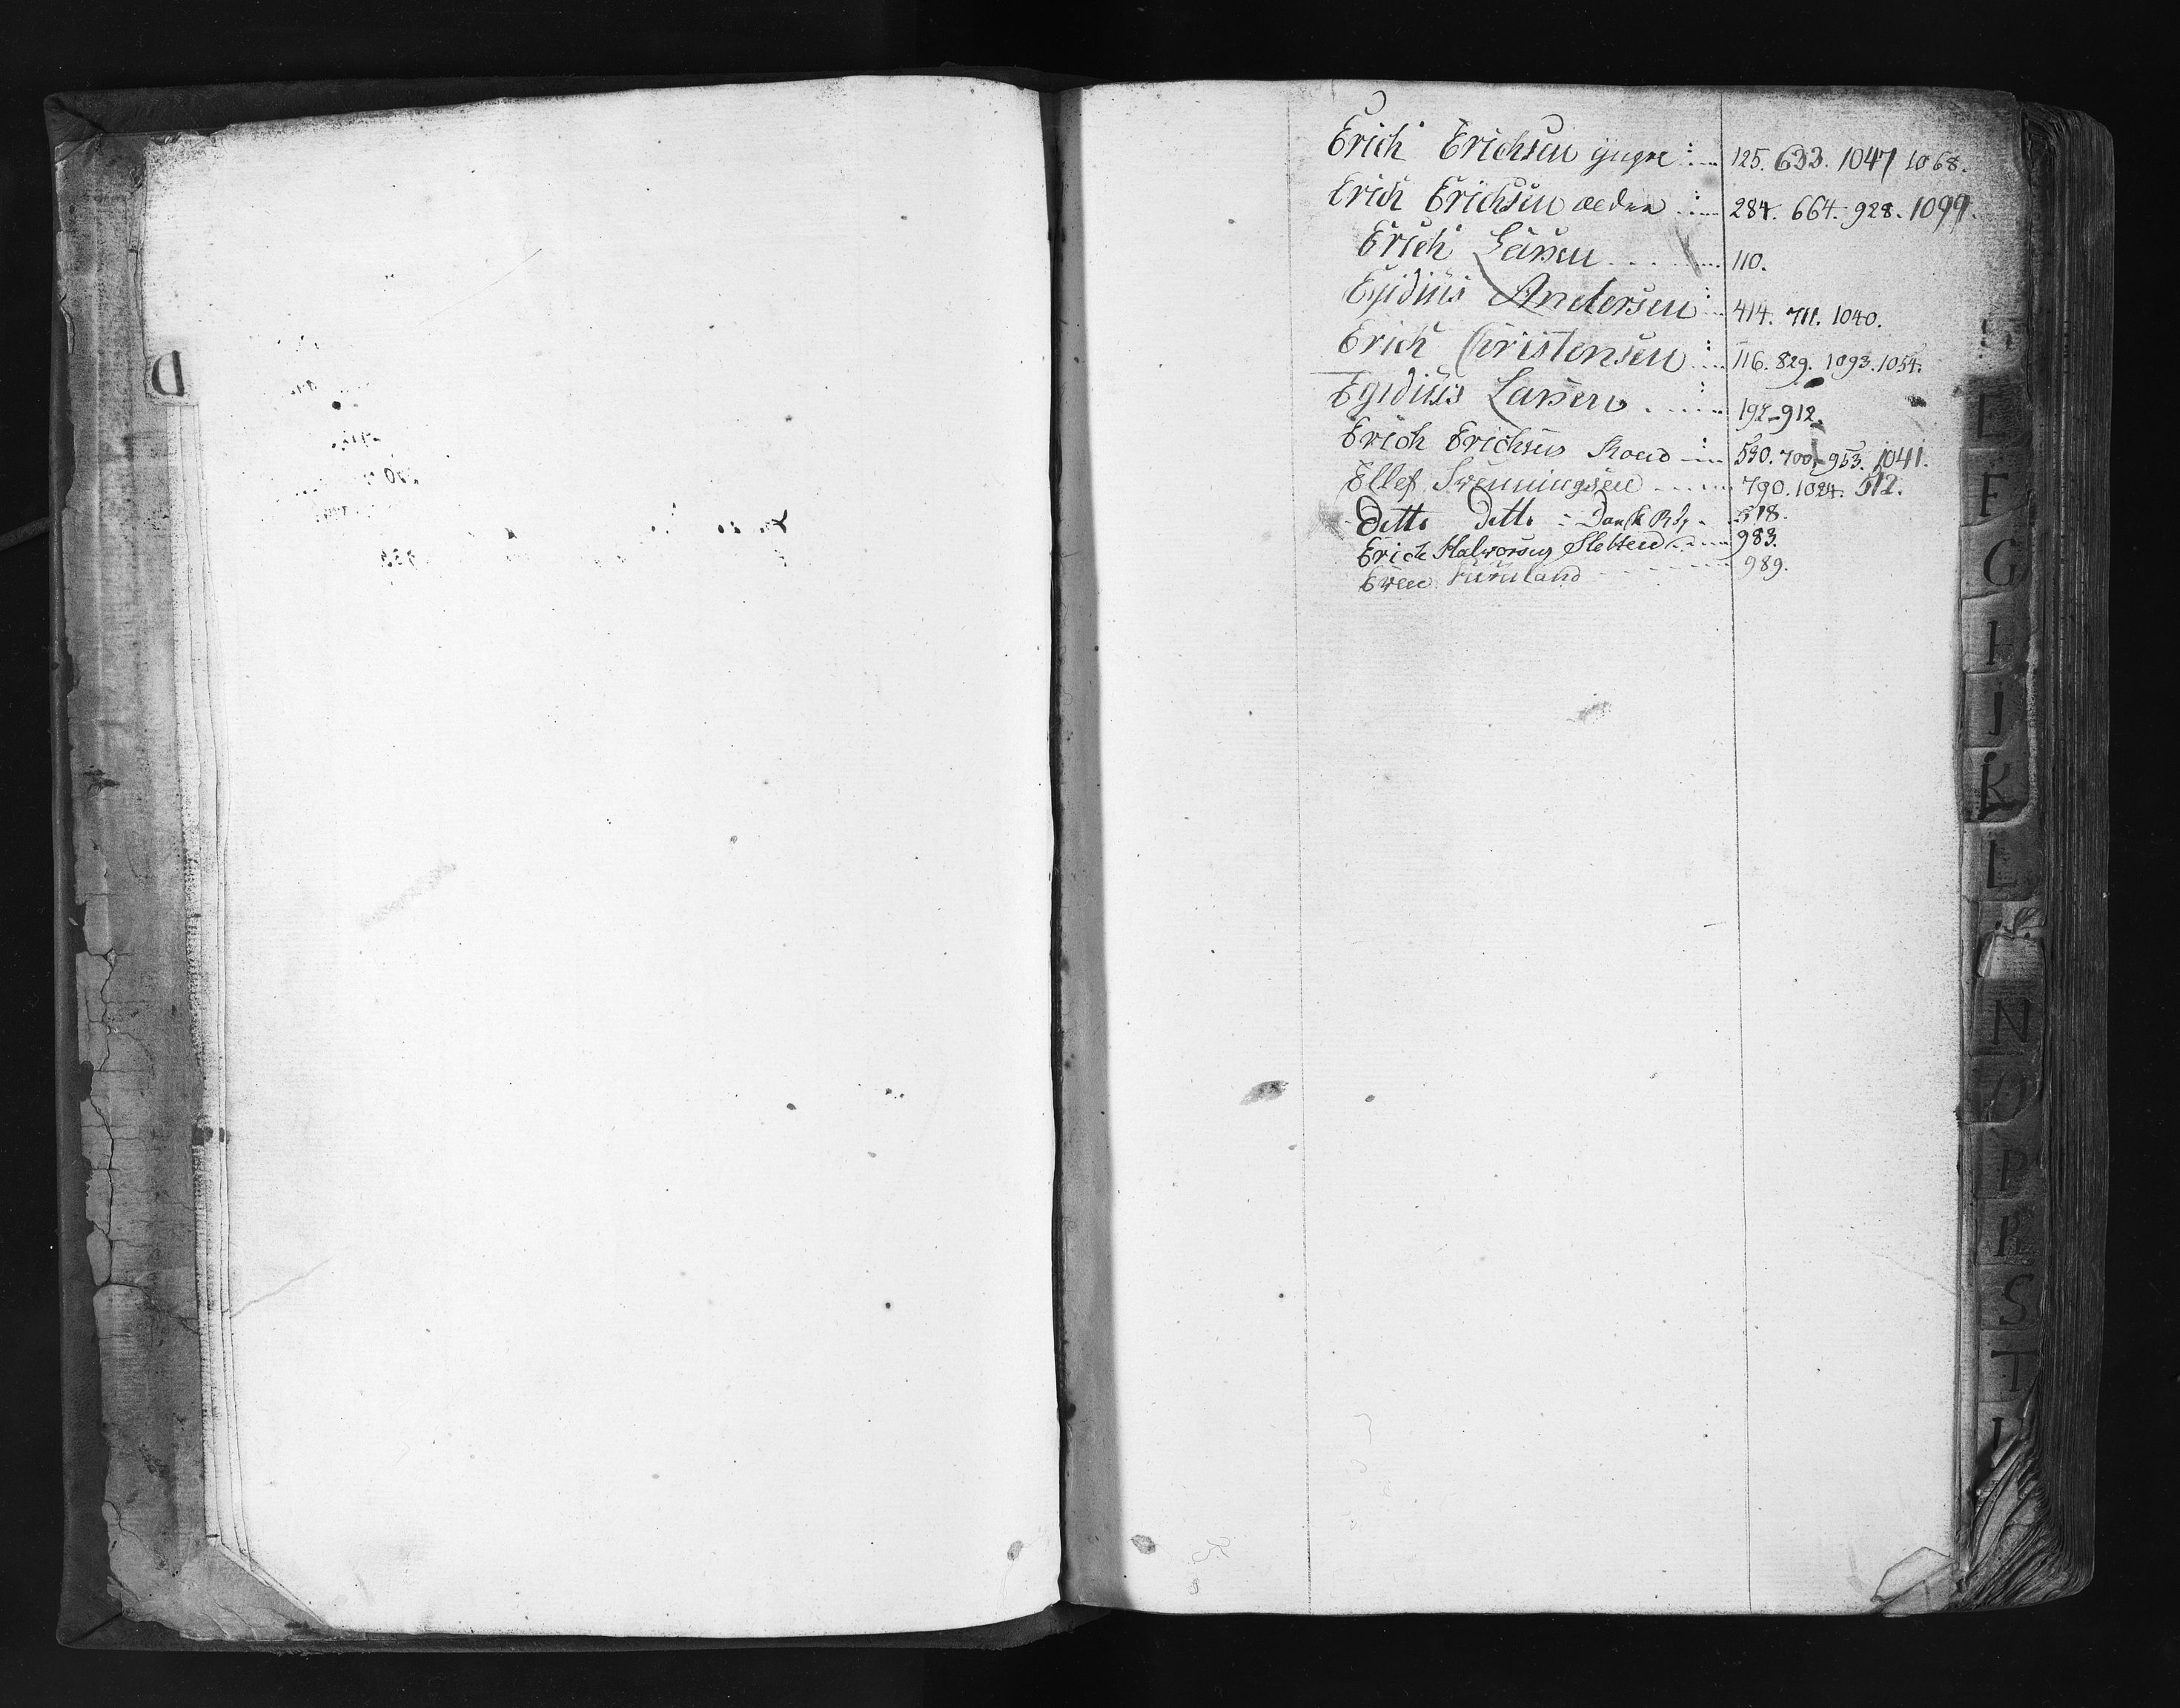 D
Erich Erichsen yngre 125. 633. 1047 1068.
Erich Erichsen ældre 284. 664. 928. 1099.
Erich Larsen 110.
Egidius Andersen 414. 711. 1040.
Erich Christensen 116. 829. 1093. 1054.
Egidius Larsen 192-912.
Erich Erichsen 530. 700. 953. 1041.
Ellef Swenningsen 790. 1024. 512.
Ditto Ditto 518.
Erich Halvorsen Sletten 983.
Even 989.
E
F
G
H
I
K
L
N
O
P
R
S
T